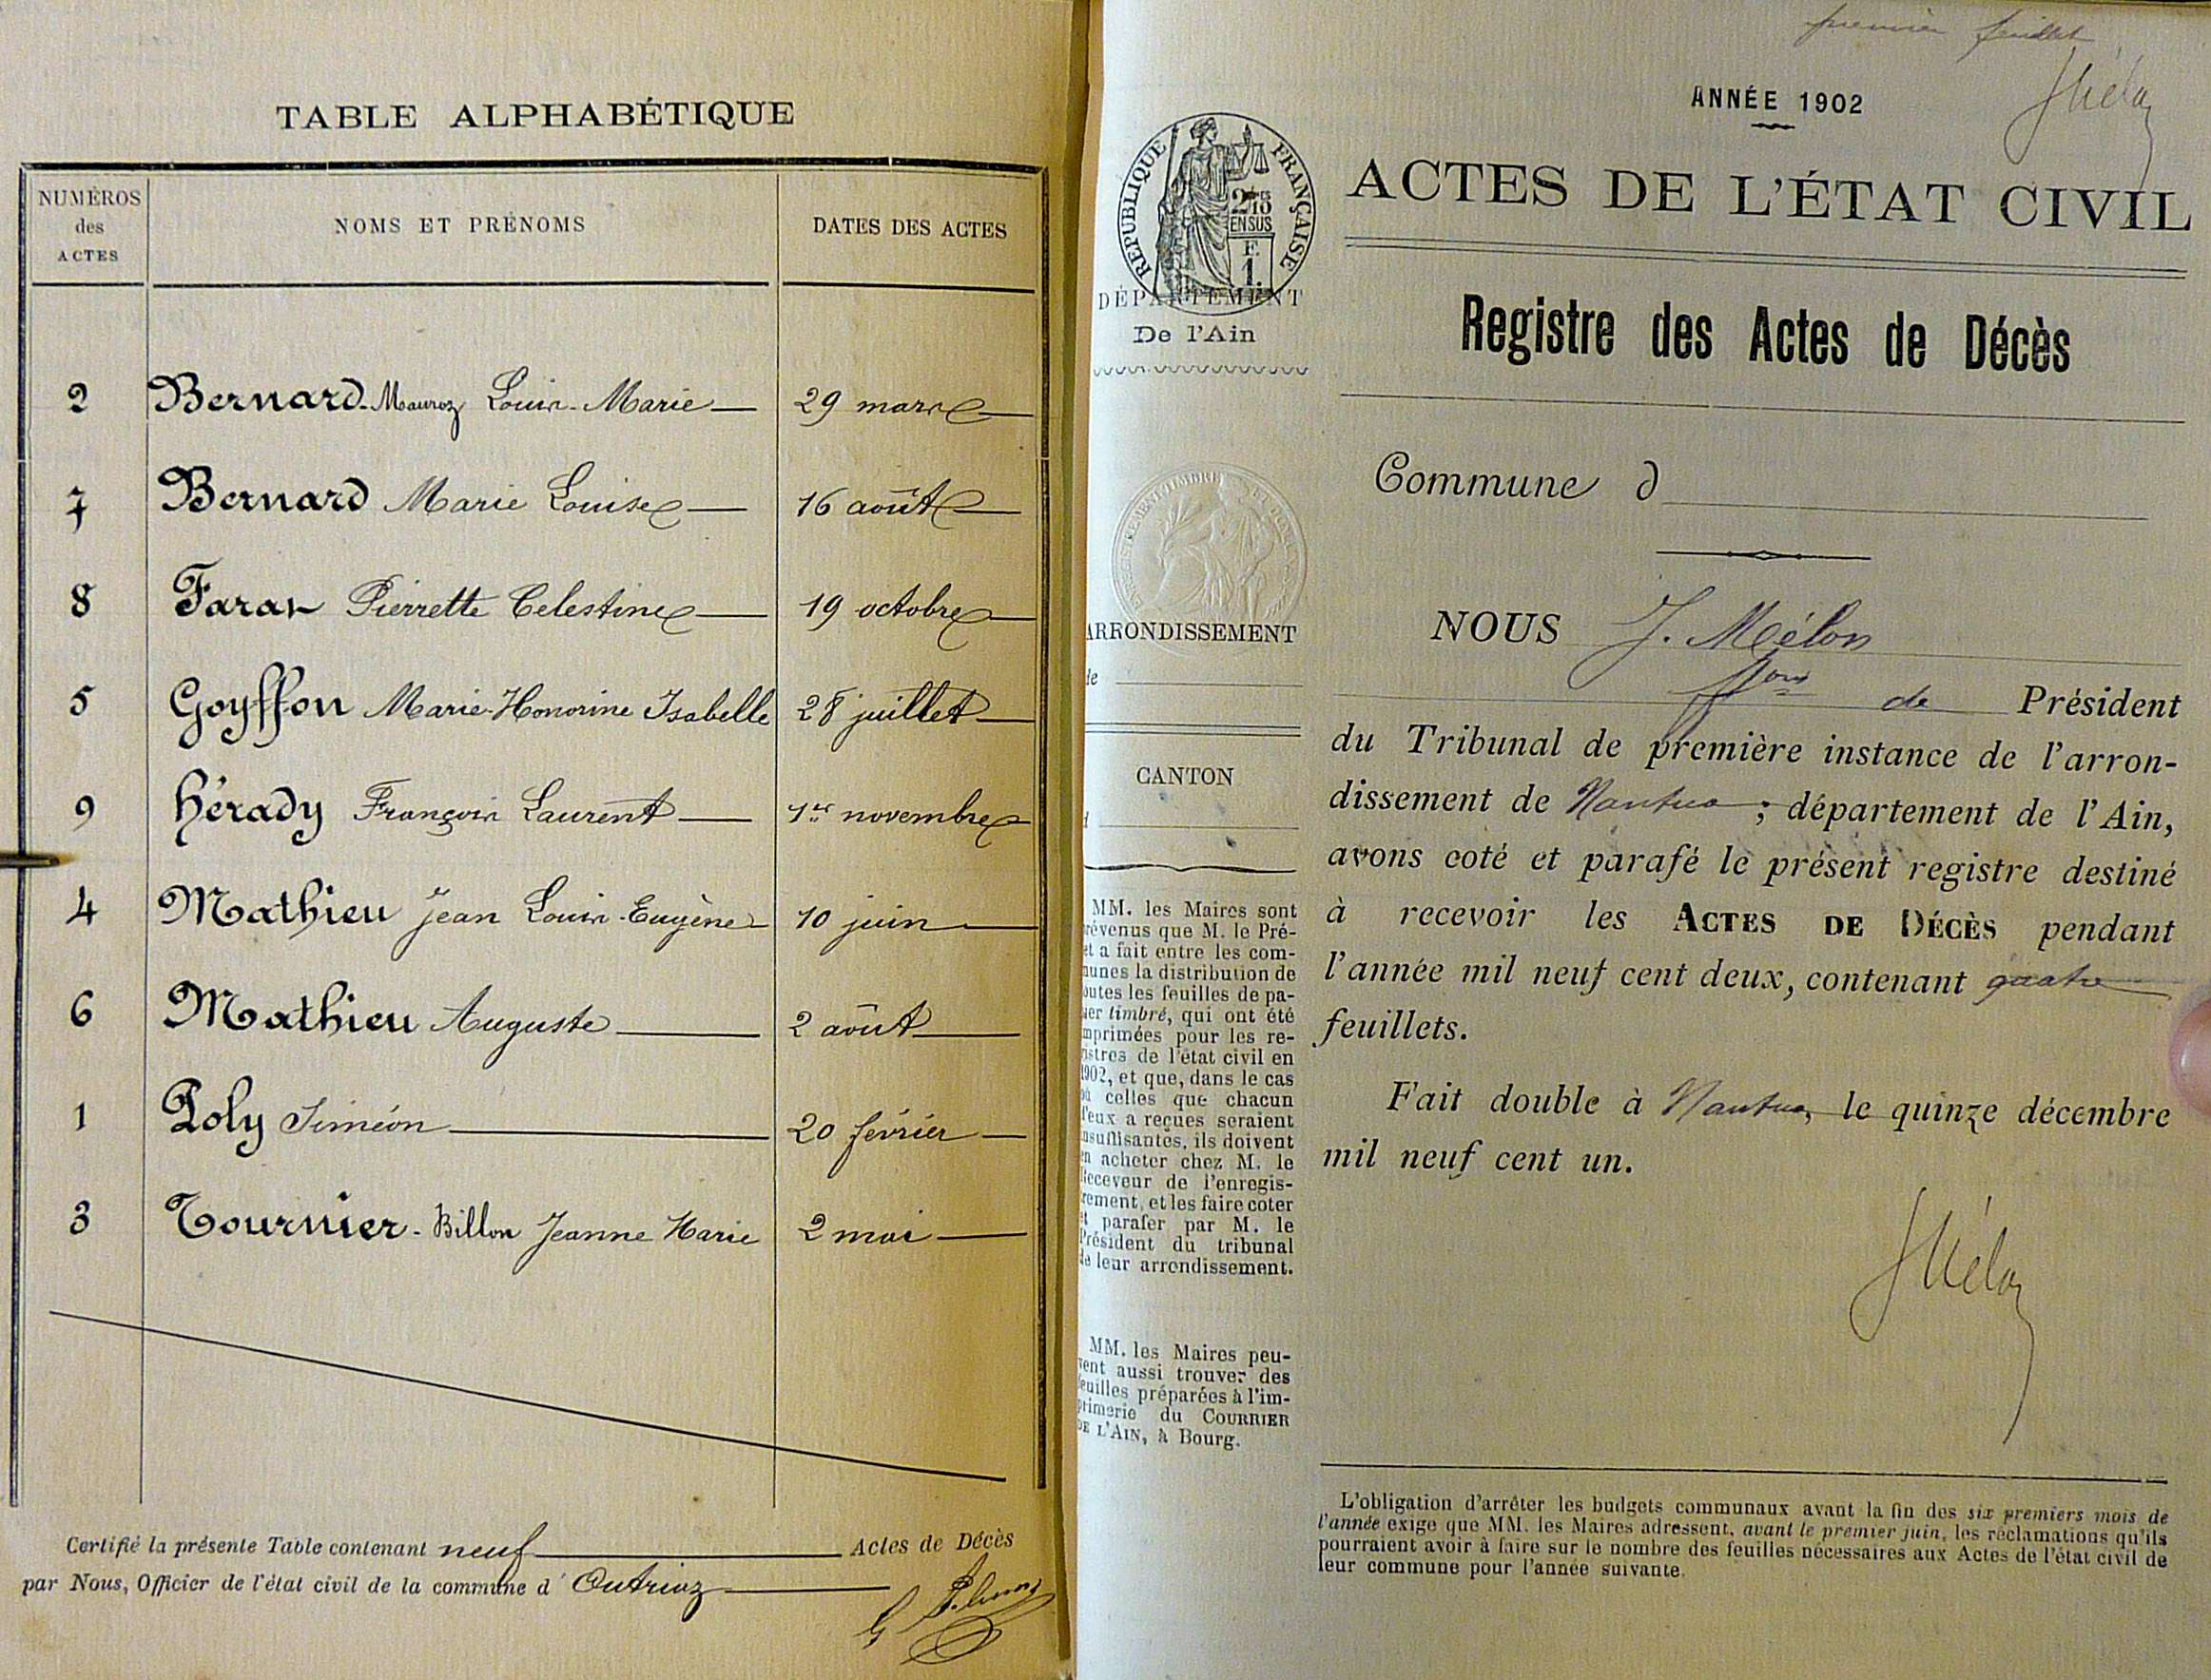 TABLE ALPHABÉTIQUE
NUMÉROS des ACTES
NOMS ET PRÉNOMS
DATES DES ACTES
2 Bernard-Mauroz Louis-Marie 29 mars
7 Bernard Marie Louise 16 août
8 Pierrette Celestine 19 octobre
5 Goyffon Marie-Honorine Isabelle 28 juillet
9 Hérady François Laurent 1er novembre
4 Mathieu Jean Louis-Eugène 10 juin
6 Mathieu Auguste 2 août
1 Poly Siméon 20 février
3 Tournier-Billon Jeanne Marie 2 mai
Certifié la présente Table contenant neuf Actes de Décès
par Nous, Officier de l'état civil de la commune d' Outriaz
premier feuillet
JMélon
ANNÉE 1902
RÉPUBLIQUE FRANÇAISE
EN SUS
ACTES DE L'ÉTAT CIVIL
DÉPARTEMENT
De l'Ain
Registre des Actes de Décès
Commune d
ARRONDISSEMENT
de
CANTON
d
NOUS J. Mélon
de Président
du Tribunal de première instance de l'arron-
dissement de Nantua ; département de l'Ain,
avons coté et parafé le présent registre destiné
à recevoir les ACTES DE DÉCÈS pendant
l'année mil neuf cent deux, contenant quatre
feuillets.
Fait double à Nantua, le quinze décembre
mil neuf cent un.
JMélon
MM. les Maires sont
révenus que M. le Pré-
et a fait entre les com-
munes la distribution de
outes les feuilles de pa-
ier timbré, qui ont été
mprimées pour les re-
istres de l'état civil en
1902, et que, dans le cas
où celles que chacun
d'eux a reçues seraient
nsuffisantes, ils doivent
en acheter chez M. le
Receveur de l'enregis-
rement, et les faire coter
et parafer par M. le
Président du tribunal
de leur arrondissement.
MM. les Maires peu-
vent aussi trouver des
feuilles préparées à l'im-
primerie du COURRIER
DE L'AIN, à Bourg.
L'obligation d'arrêter les budgets communaux avant la fin des six premiers mois de
l'année exige que MM. les Maires adressent, avant le premier juin, les réclamations qu'ils
pourraient avoir à faire sur le nombre des feuilles nécessaires aux Actes de l'état civil de
leur commune pour l'année suivante.